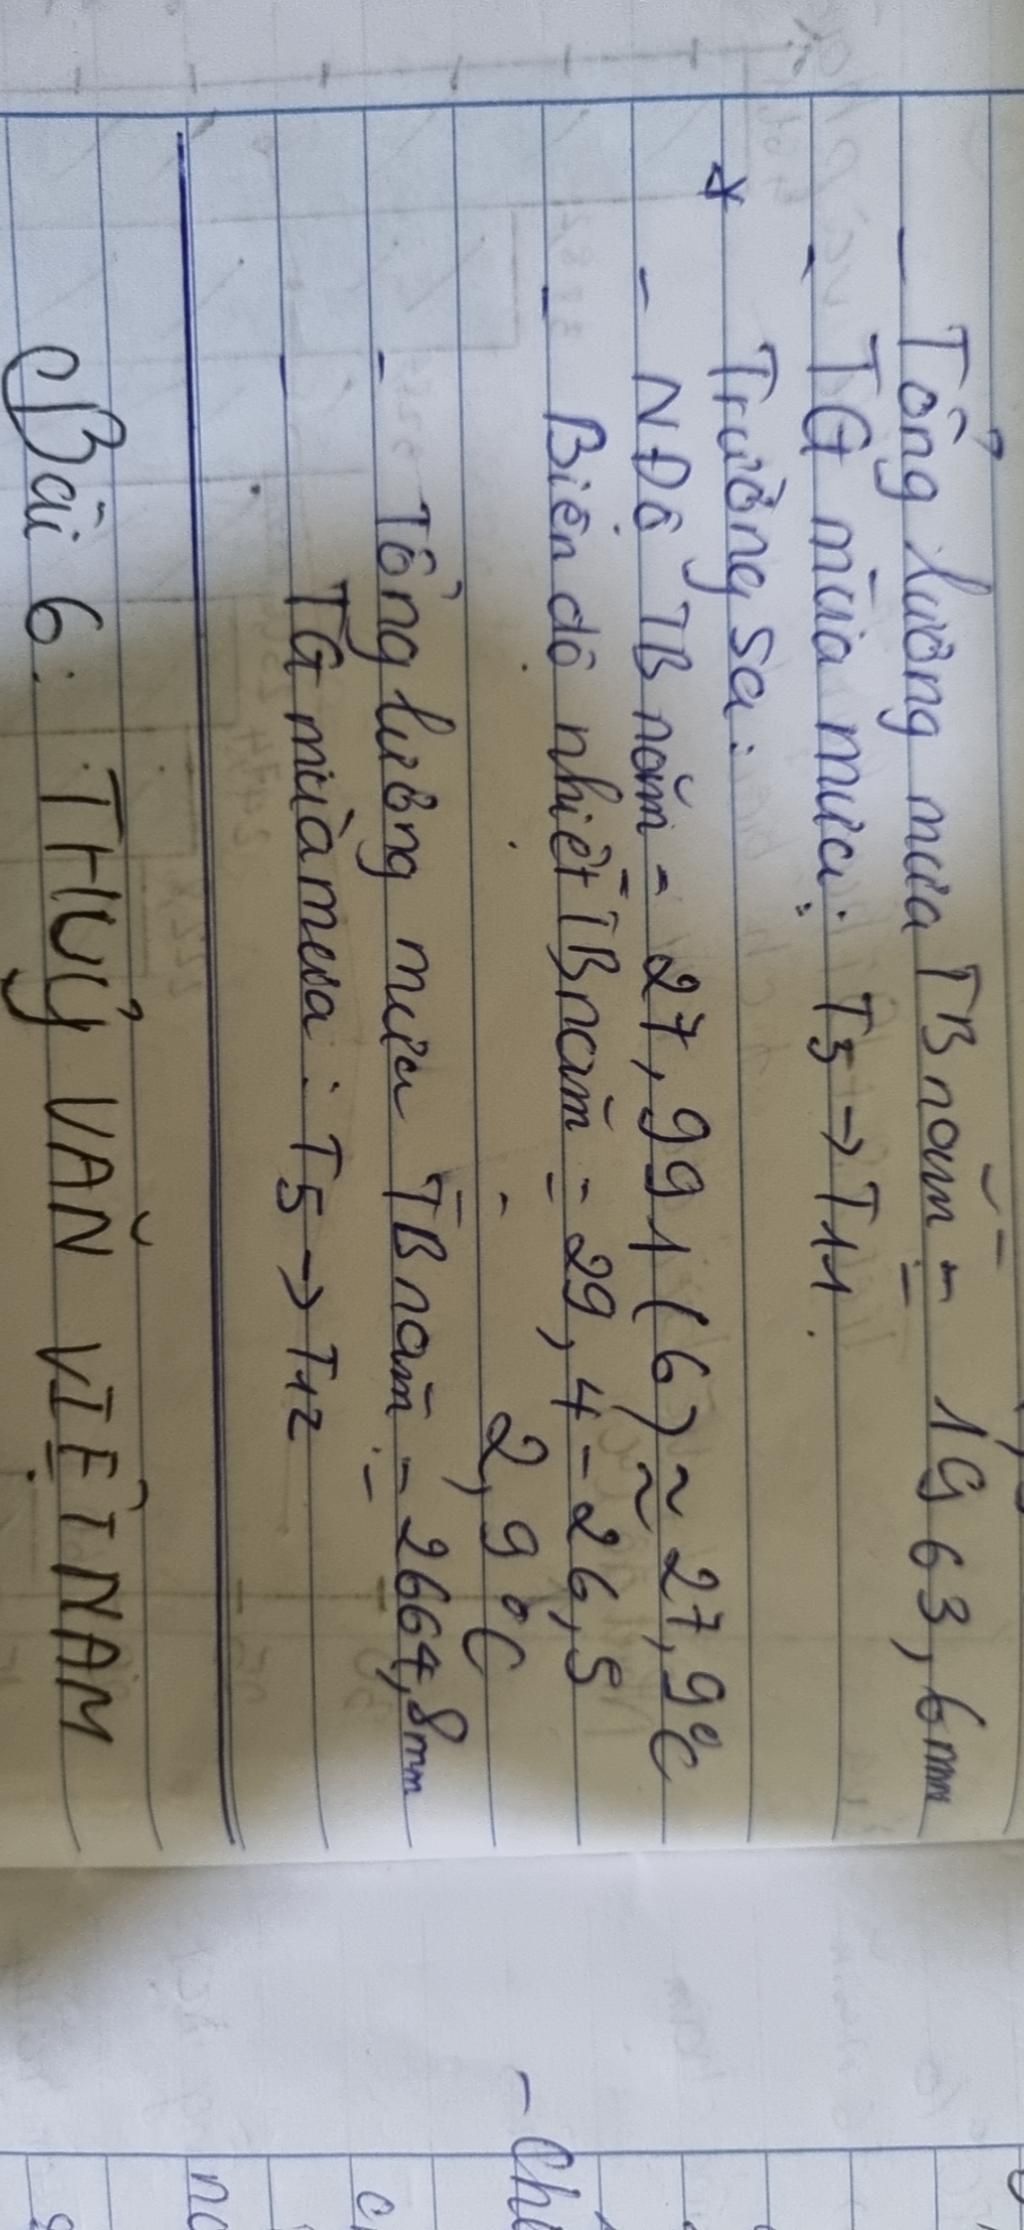 - Tổng lượng mưa TB năm = 1963,6mm
- TG mùa mưa: T5 → T11.
* Trường Sa:
- NĐộ TB năm = 27,991(6) ≈ 27,9°C
- Biên độ nhiệt TB năm = 29,4 - 26,5
= 2,9°C
- Tổng lượng mưa TB năm = 2664,8mm
- TG mùa mưa: T5 → T12
Bài 6: THUỶ VĂN VIỆT NAM